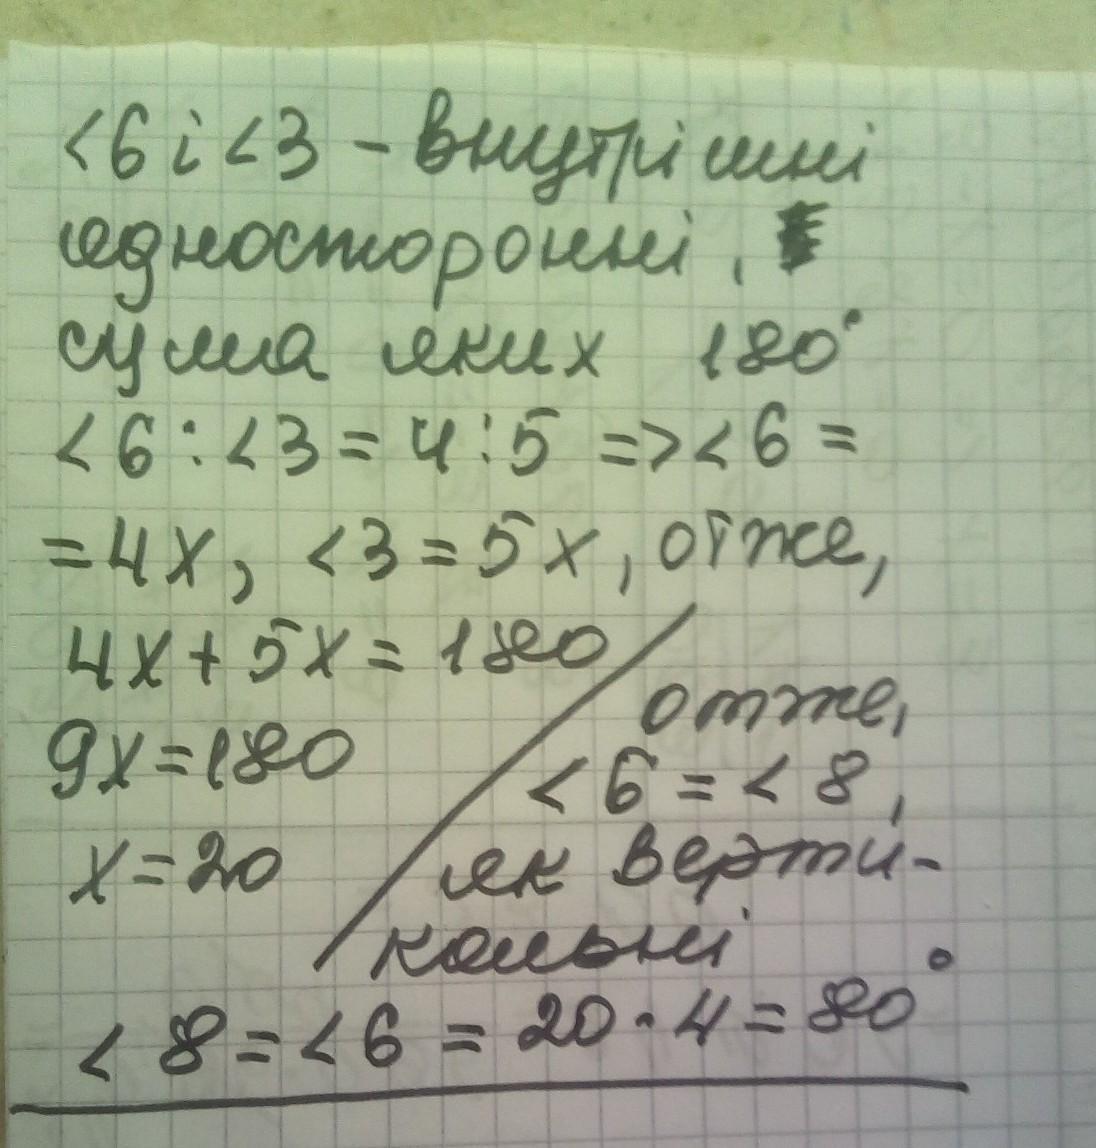 <6 і <3 - внутрішні
односторонні,
сума яких 180°
<6 : <3 = 4 : 5 => <6 =
= 4x, <3 = 5x, отже,
4x + 5x = 180
9x = 180
x = 20
отже,
<6 = <8,
як верти-
кальні
<8 = <6 = 20 · 4 = 80°